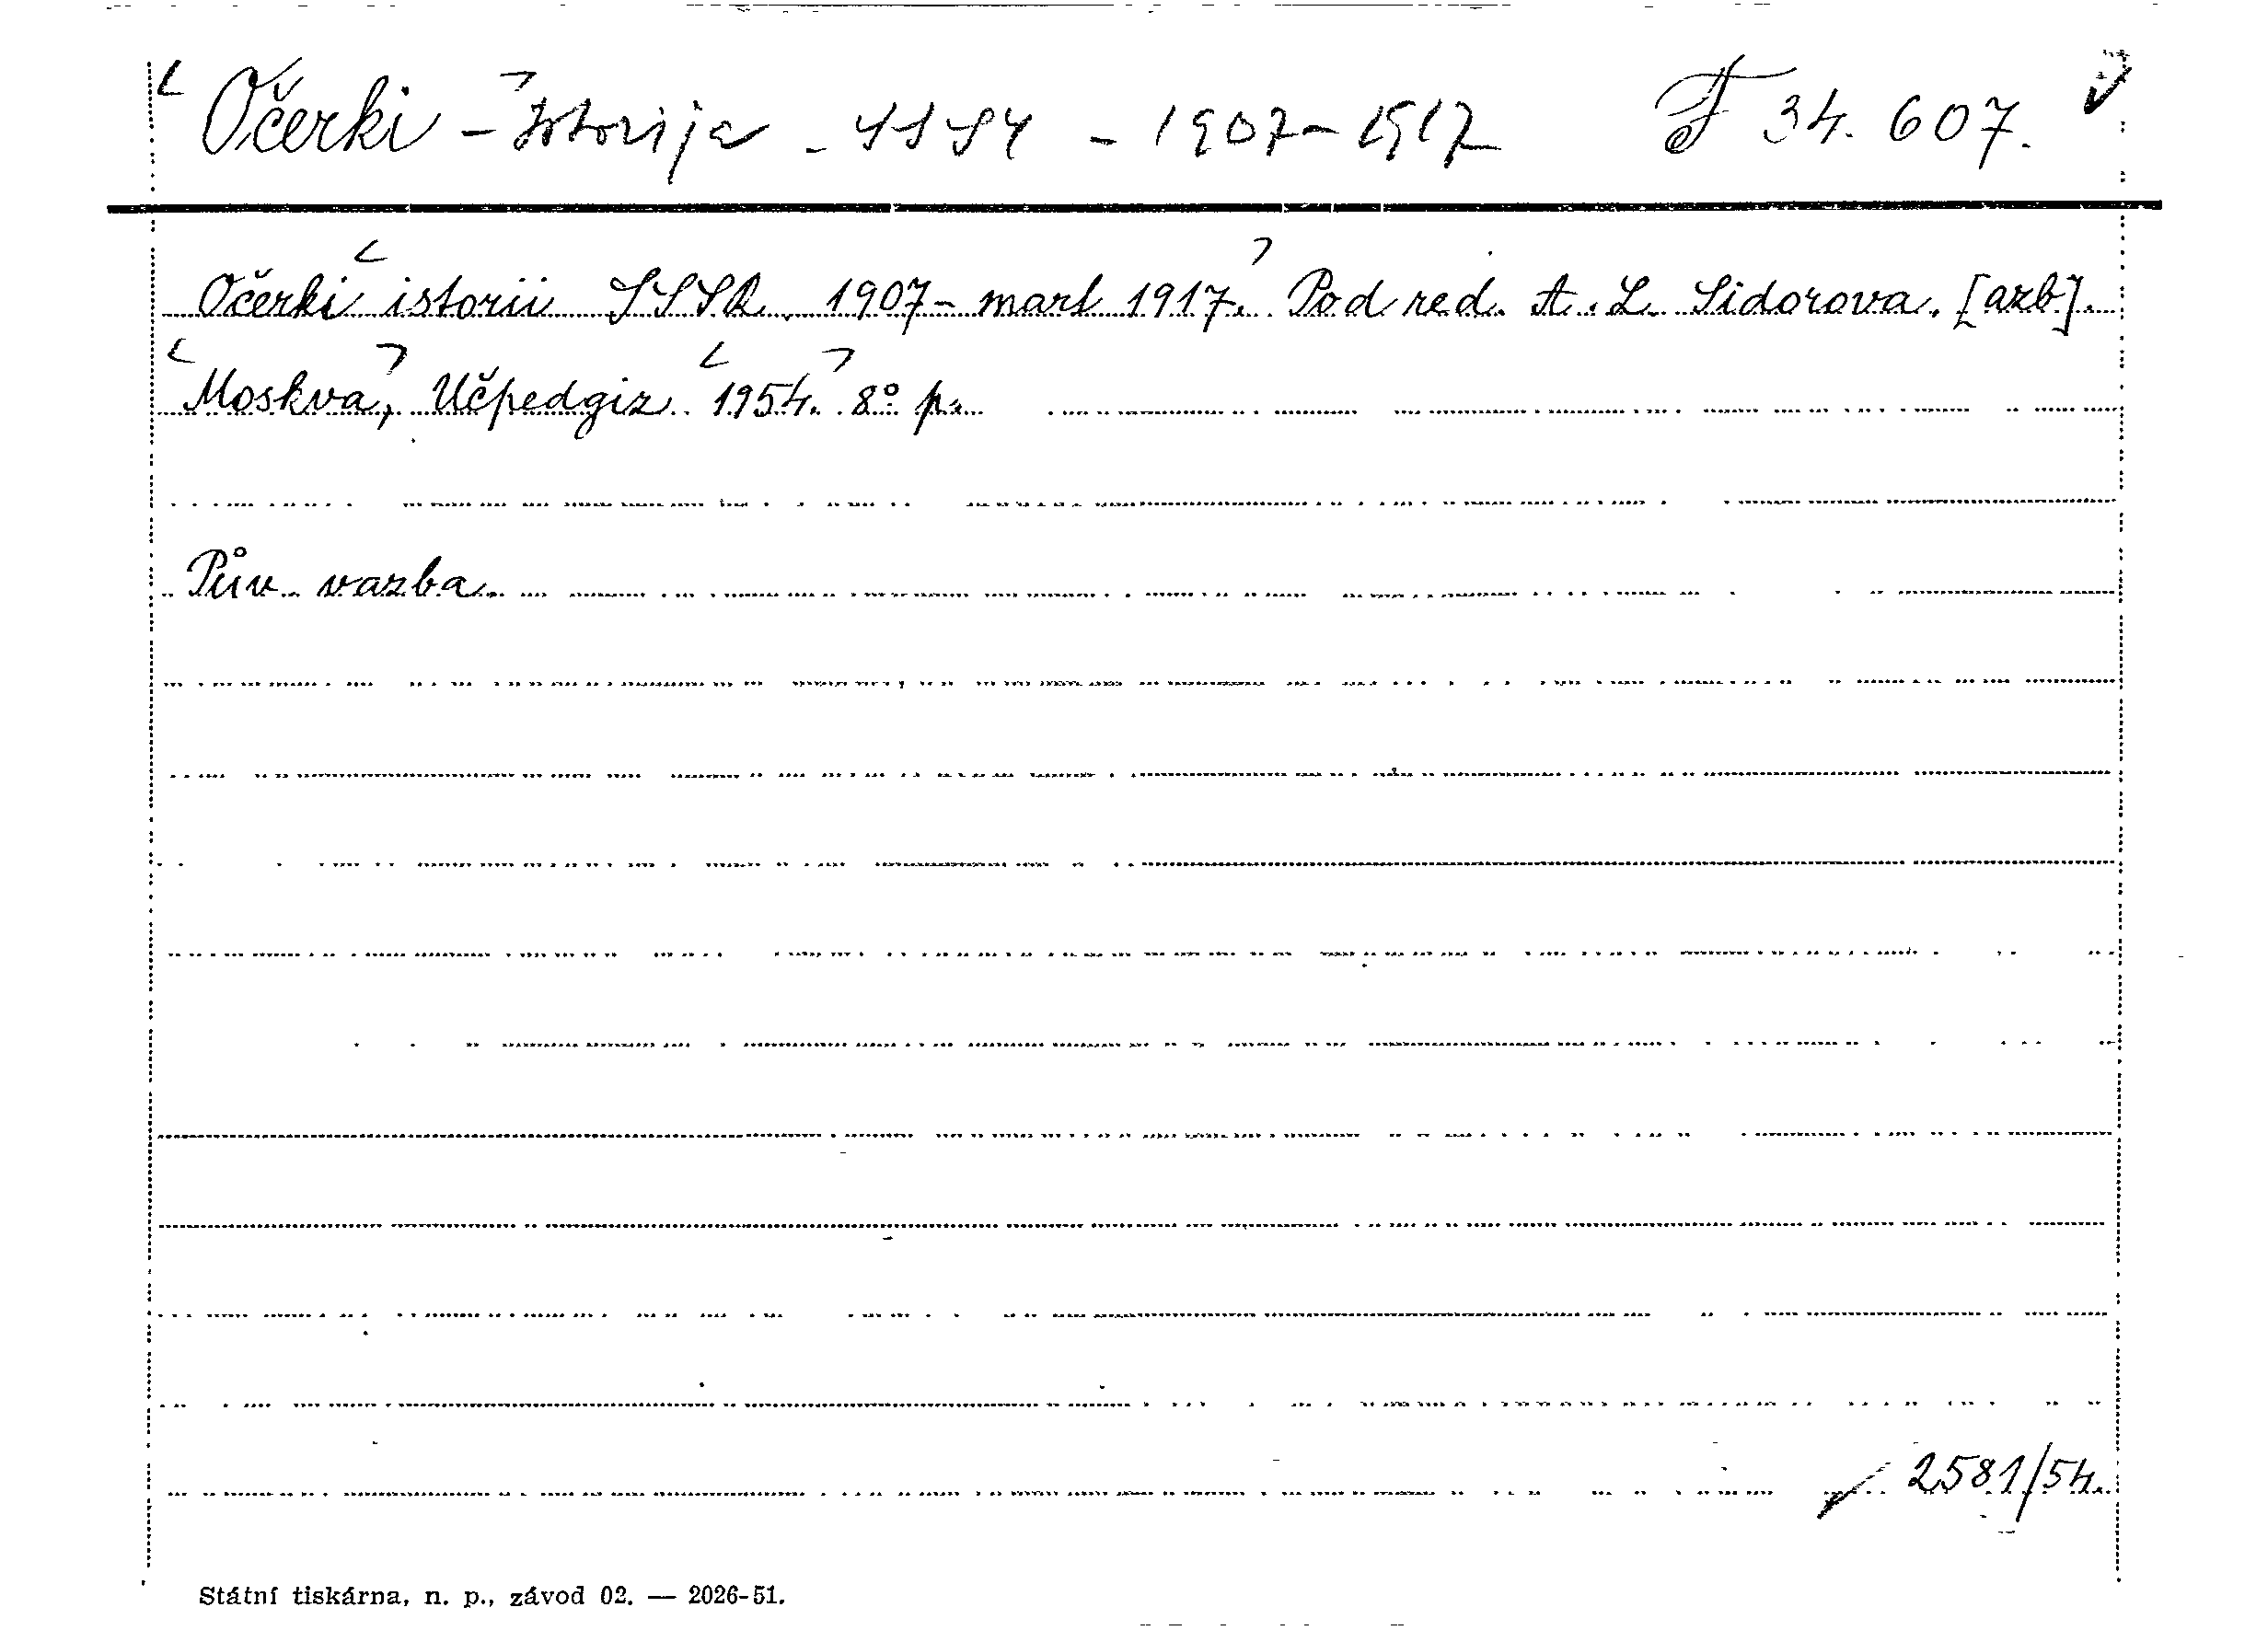 Očerki - Istorija - SSSR - 1907-1917 F 34.607.
Očerki istorii SSSR. 1907-mart 1917. Pod red. A. L. Sidorova. [azb].
Moskva, Učpedgiz 1954. 8° p.
Pův. vazba.
2581/54.
Státní tiskárna, n. p., závod 02. — 2026-51.